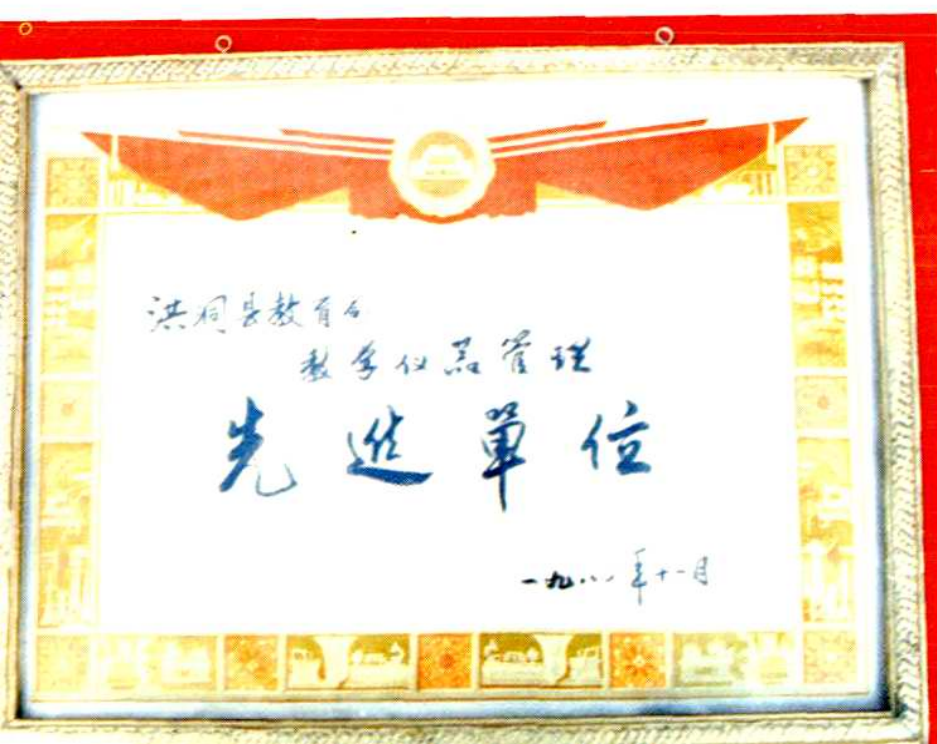 洪洞县教育局
教学仪器管理
先進單位
一九八八年十一月